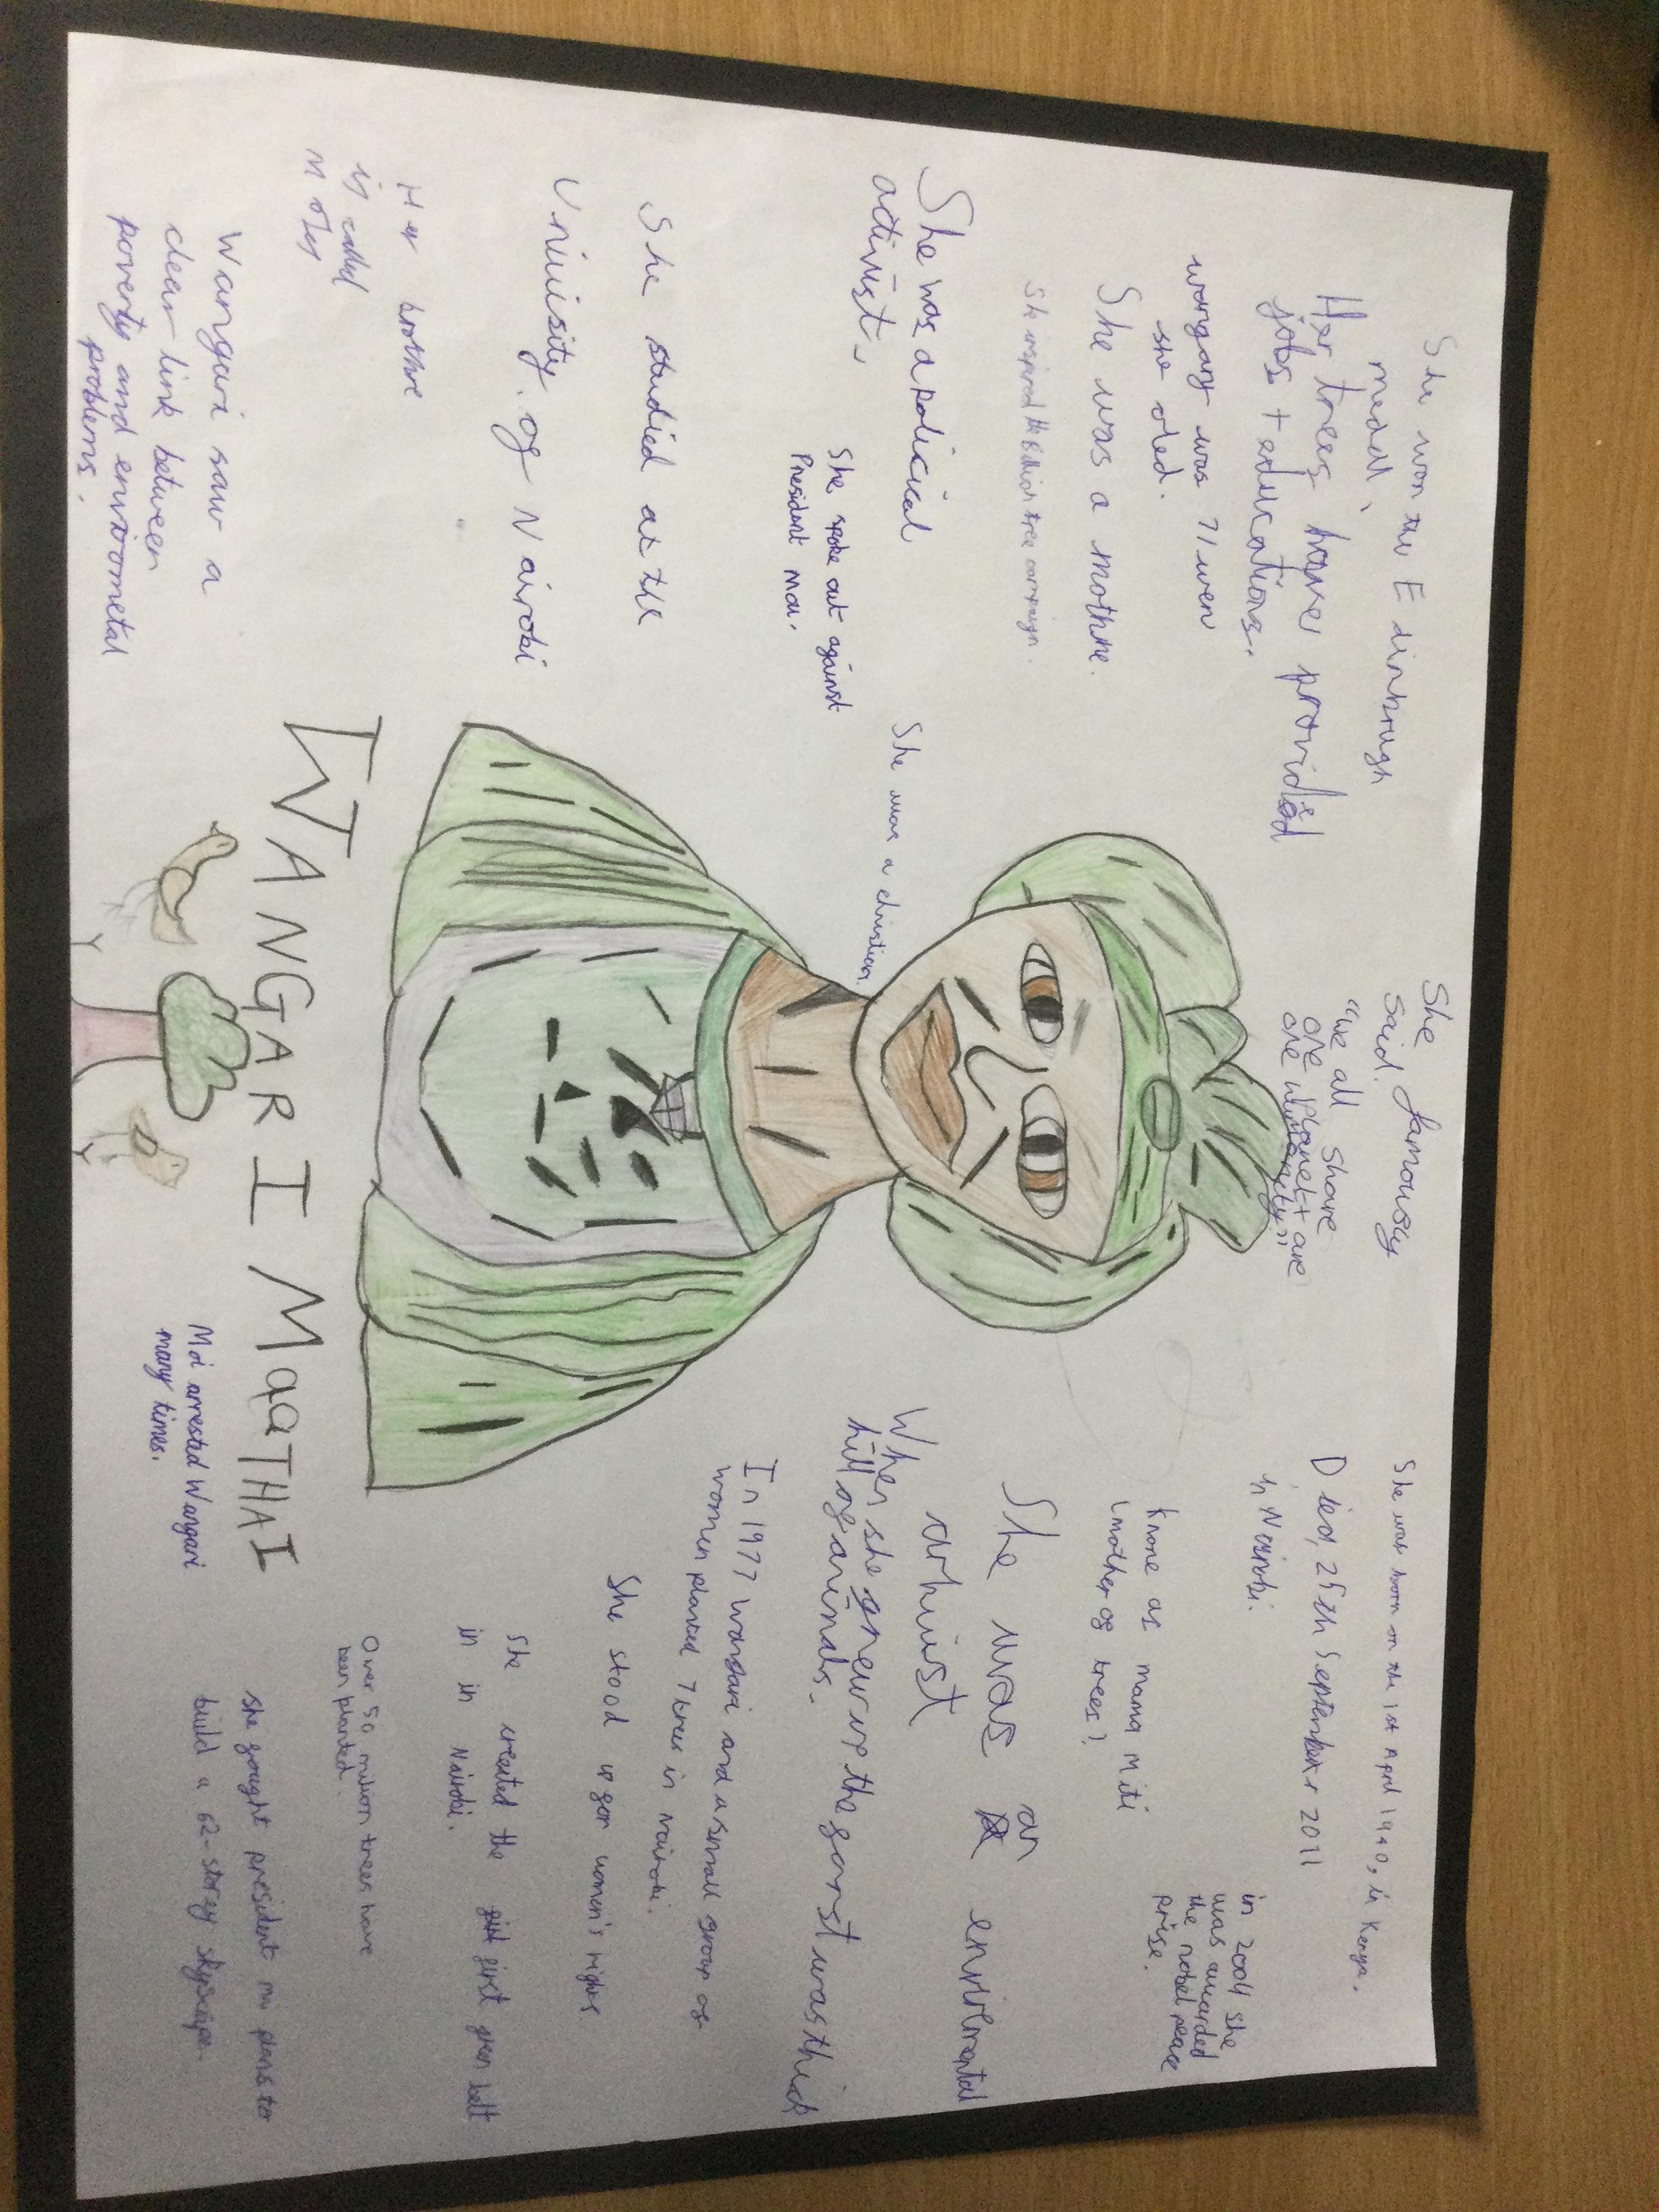 She won the Edinbrugh
medall,
Her trees have provided
jobs + educations.
wangary was 71 wen
she died.
She was a mothre.
She inspired the Billion tree campaign.
She was a policical
activist,
She spoke out against
President Moi.
She was a christian
She studied at the
Univisity of Nairobi
Her brothre
is called
Wangari saw a
clear link between
poverty and enviromental
problems.
She famousy
said.
"We all share
one planet + are
one humanity."
WANGARI MaaTHAI
She was born on the 1st April 1940, in Kenya.
Died, 25th September 2011
in Nairobi.
in 2004 she
was awarded
the nobel peace
prise.
Knone as mama Miti
(mother of trees)
She was an envirlmental
arhivist
When she grew up the forist was thick
full of animals.
In 1977 Wangari and a small group of
women planted 7 trees in nairobi.
She stood up for women's rights.
She created the first green belt
in in Nairobi.
Over 50 million trees have
been planted.
she fought president plans to
build a 62-storey skyscrape.
Moi arrested Wangari
many times.